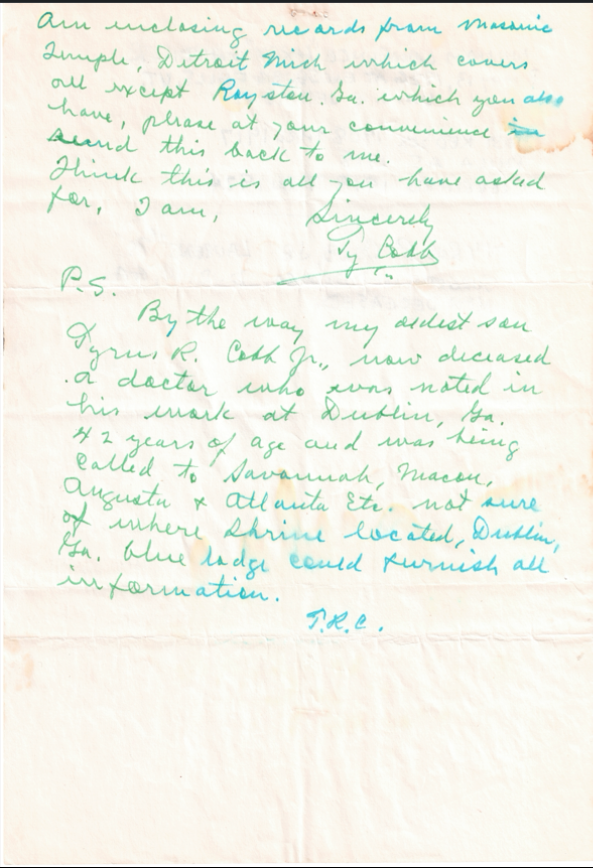 Am enclosing records from Masonic
Temple, Detroit Mich which covers
all except Royston. Ga. which you also
have, please at your convenience
send this back to me.
Think this is all you have asked
for, I am,
Sincerely
Ty Cobb
P.S.
By the way my oldest son
Tyrus R. Cobb Jr., now deceased
a doctor who was noted in
his work at Dublin, Ga.
42 years of age and was being
called to Savannah, Macon,
Augusta & Atlanta Etc. not sure
of where Shrine located, Dublin,
Ga. blue lodge could furnish all
information.
T.R.C.